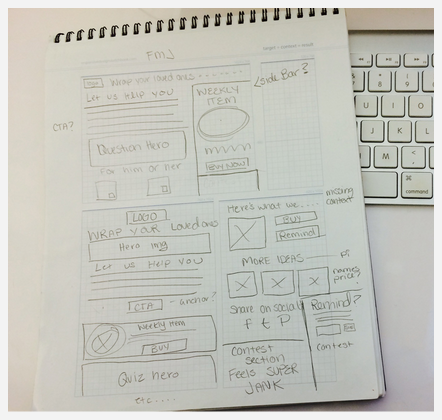 FMJ
target • context • result
logo Wrap your loved ones
Let us Help you
CTA?
Question Hero
For him or her
WEEKLY
ITEM
BUY NOW
Side Bar?
LOGO
WRAP YOUR Loved one
Hero img
Let us Help you
CTA - anchor?
Weekly Item
BUY
Quiz hero
etc....
Here's what we....
missing
context
BUY
Remind
MORE IDEAS
names
price?
Share on social
f t P
Remind?
contest
section
Feels SUPER
JANK
contest
command